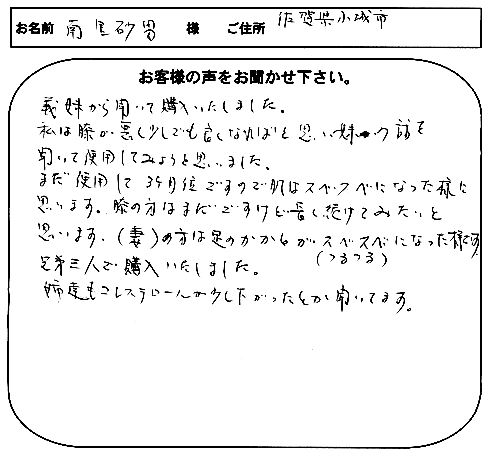 お名前 南里砂男 様 ご住所 佐賀県小城市
お客様の声をお聞かせ下さい。
義妹から聞いて購入いたしました。
私は膝が悪く少しでも良くなればと思い妹の話を
聞いて使用してみようと思いました。
まだ使用して3ヶ月位ですので肌はスベスベになった様に
思います。膝の方はまだですけど長く続けてみたいと
思います。(妻)の方は足のかかとがスベスベになった様です
(つるつる)
兄弟三人で購入いたしました。
姉達もコレステロールが少し下がったとか聞いてます。